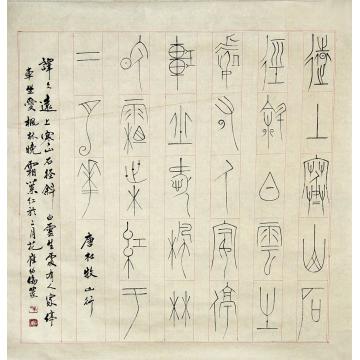 遠上寒山石
徑斜白雲生
處有人家停
車坐愛楓林
晚霜葉紅于
二月花
唐杜牧山行
遠上寒山石径斜 白雲生處有人家停
車坐愛楓林晚霜葉红於二月花